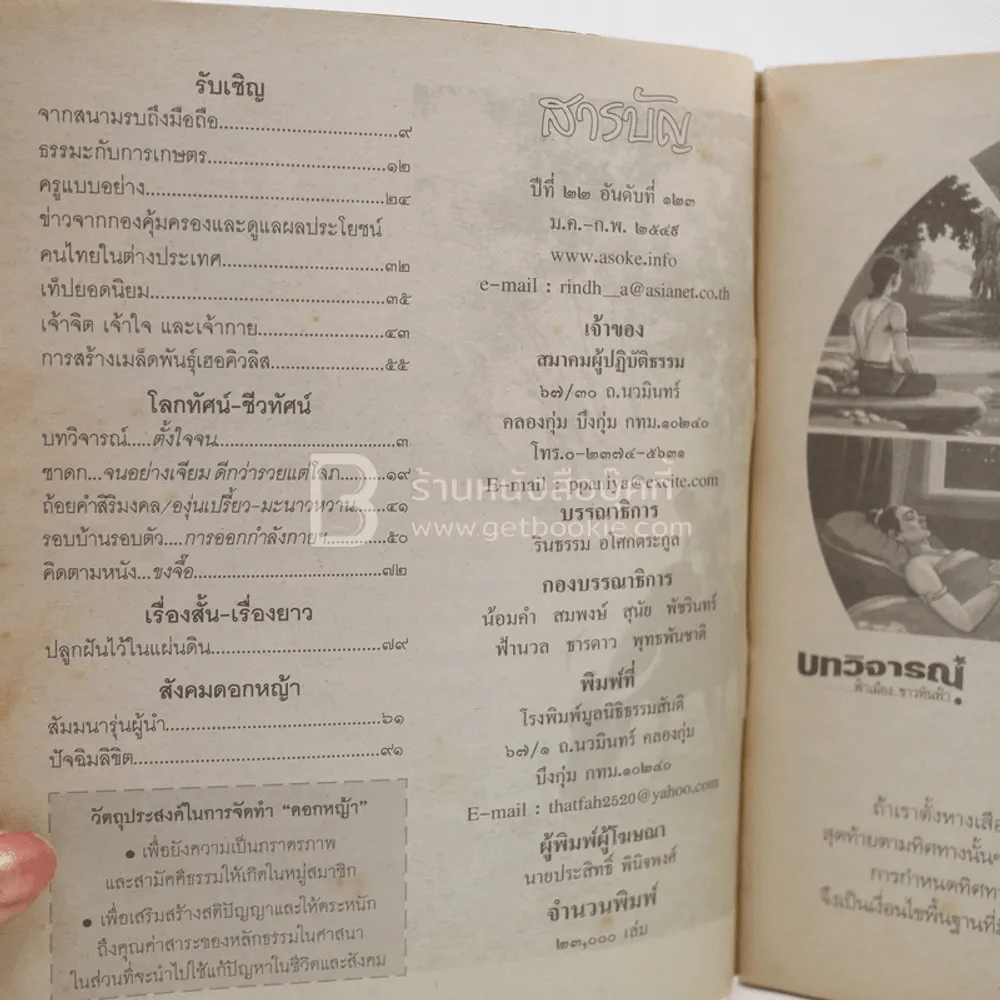 รับเชิญ
จากสนามรบถึงมือถือ................................๙
ธรรมะกับการเกษตร................................๑๒
ครูแบบอย่าง................................๒๔
ข่าวจากกองคุ้มครองและดูแลผลประโยชน์
คนไทยในต่างประเทศ................................๓๒
เท็ปยอดนิยม................................๓๕
เจ้าจิต เจ้าใจ และเจ้ากาย................................๔๓
การสร้างเมล็ดพันธุ์เฮอคิวลิส................................๕๕
โลกทัศน์-ชีวทัศน์
บทวิจารณ์.....ตั้งใจจน................................๓
ชาดก...จนอย่างเจียม ดีกว่ารวยแต่โลภ..........๑๙
ถ้อยคำสิริมงคล/องุ่นเปรี้ยว-มะนาวหวาน.......๔๑
รอบบ้านรอบตัว....การออกกำลังกายฯ..............๕๐
คิดตามหนัง...ขงจื๊อ................................๗๒
เรื่องสั้น-เรื่องยาว
ปลูกฝันไว้ในแผ่นดิน................................๗๙
สังคมดอกหญ้า
สัมมนารุ่นผู้นำ................................๖๑
ปัจฉิมลิขิต................................๙๑
วัตถุประสงค์ในการจัดทำ “ดอกหญ้า”
● เพื่อยังความเป็นภราดรภาพ
และสามัคคีธรรมให้เกิดในหมู่สมาชิก
● เพื่อเสริมสร้างสติปัญญาและให้ตระหนัก
ถึงคุณค่าสาระของหลักธรรมในศาสนา
ในส่วนที่จะนำไปใช้แก้ปัญหาในชีวิตและสังคม
สารบัญ
ปีที่ ๒๒ อันดับที่ ๑๒๓
ม.ค.-ก.พ. ๒๕๔๙
www.asoke.info
e-mail : rindh__a@asianet.co.th
เจ้าของ
สมาคมผู้ปฏิบัติธรรม
๖๗/๓๐ ถ.นวมินทร์
คลองกุ่ม บึงกุ่ม กทม.๑๐๒๔๐
โทร.๐-๒๓๗๔-๕๖๓๑
E-mail : ppaniya@excite.com
บรรณาธิการ
รินธรรม อโศกตระกูล
กองบรรณาธิการ
น้อมคำ สมพงษ์ สุนัย พัชรินทร์
ฟ้านวล ธารดาว พุทธพันชาติ
พิมพ์ที่
โรงพิมพ์มูลนิธิธรรมสันติ
๖๗/๑ ถ.นวมินทร์ คลองกุ่ม
บึงกุ่ม กทม.๑๐๒๔๐
E-mail : thatfah2520@yahoo.com
ผู้พิมพ์ผู้โฆษณา
นายประสิทธิ์ พินิจพงศ์
จำนวนพิมพ์
๒๓,๐๐๐ เล่ม
ร้านหนังสือบุ๊คกี้
www.getbookie.com
บทวิจารณ์
ฟ้าเมือง ชาวหินฟ้า
ถ้าเราตั้งหางเสือ
สุดท้ายตามทิศทางนั้นๆ
การกำหนดทิศทาง
จึงเป็นเงื่อนไขพื้นฐานที่